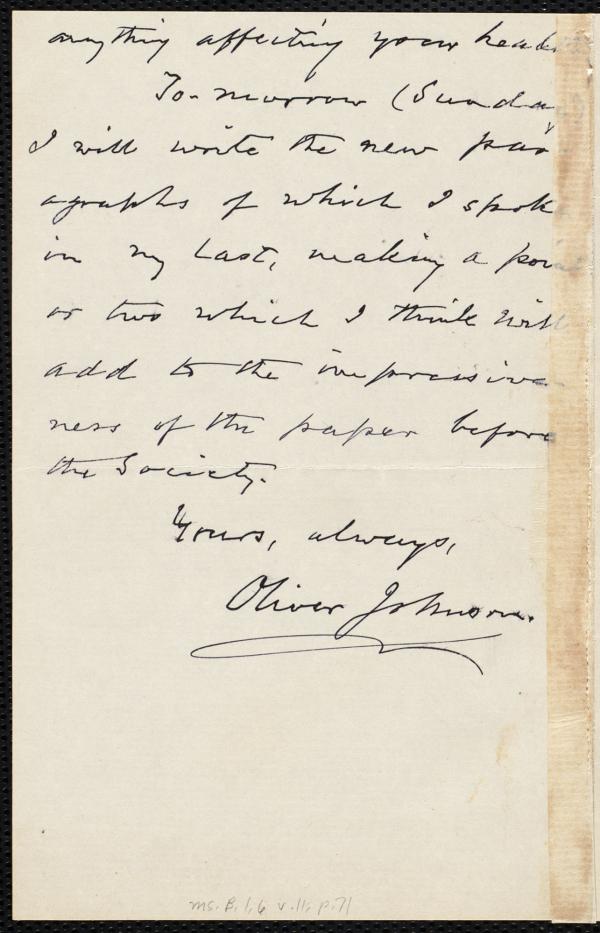 anything affecting your head
To-morrow (Sunday)
I will write the new par-
agraphs of which I spoke
in my last, making a point
or two which I think will
add to the impressive-
ness of the paper before
the Society.
Yours, always,
Oliver Johnson.
ms. B. 1. 6 v. 11, p. 71